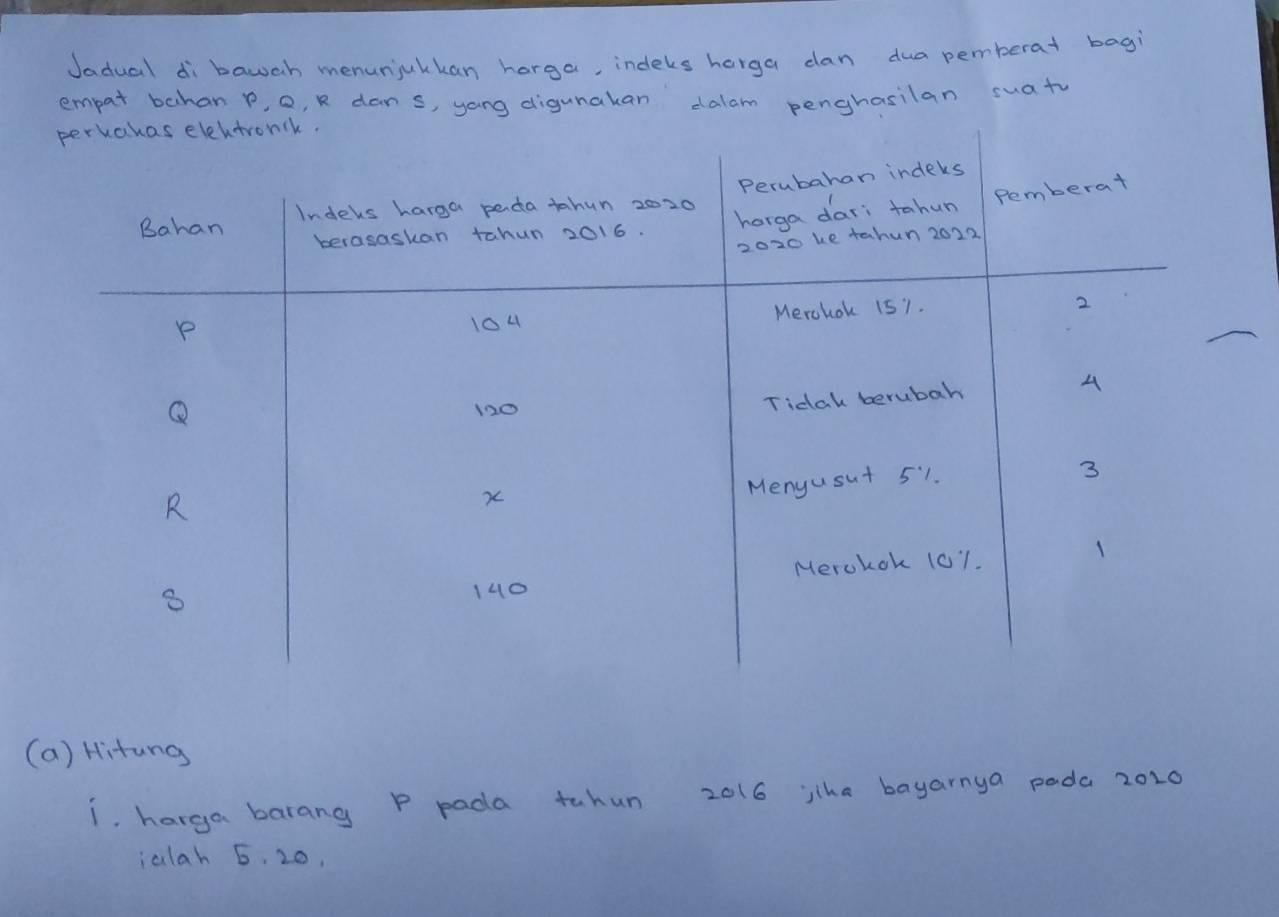 Jadual di bawah menunjukkan harga, indeks harga dan dua pemberat bagi
empat bahan P, Q, R dan S, yang digunakan dalam penghasilan suatu
perkakas elektronik.
Bahan
Indeks harga pada tahun 2020
berasaskan tahun 2016.
Perubahan indeks
harga dari tahun
2020 ke tahun 2022
Pemberat
P 104 Merokok 15%. 2
Q 120 Tidak berubah 4
R x Menyusut 5%. 3
S 140 Merokok 10%. 1
(a) Hitung
i. harga barang P pada tahun 2016 jika bayarnya pada 2020
ialah 5.20,